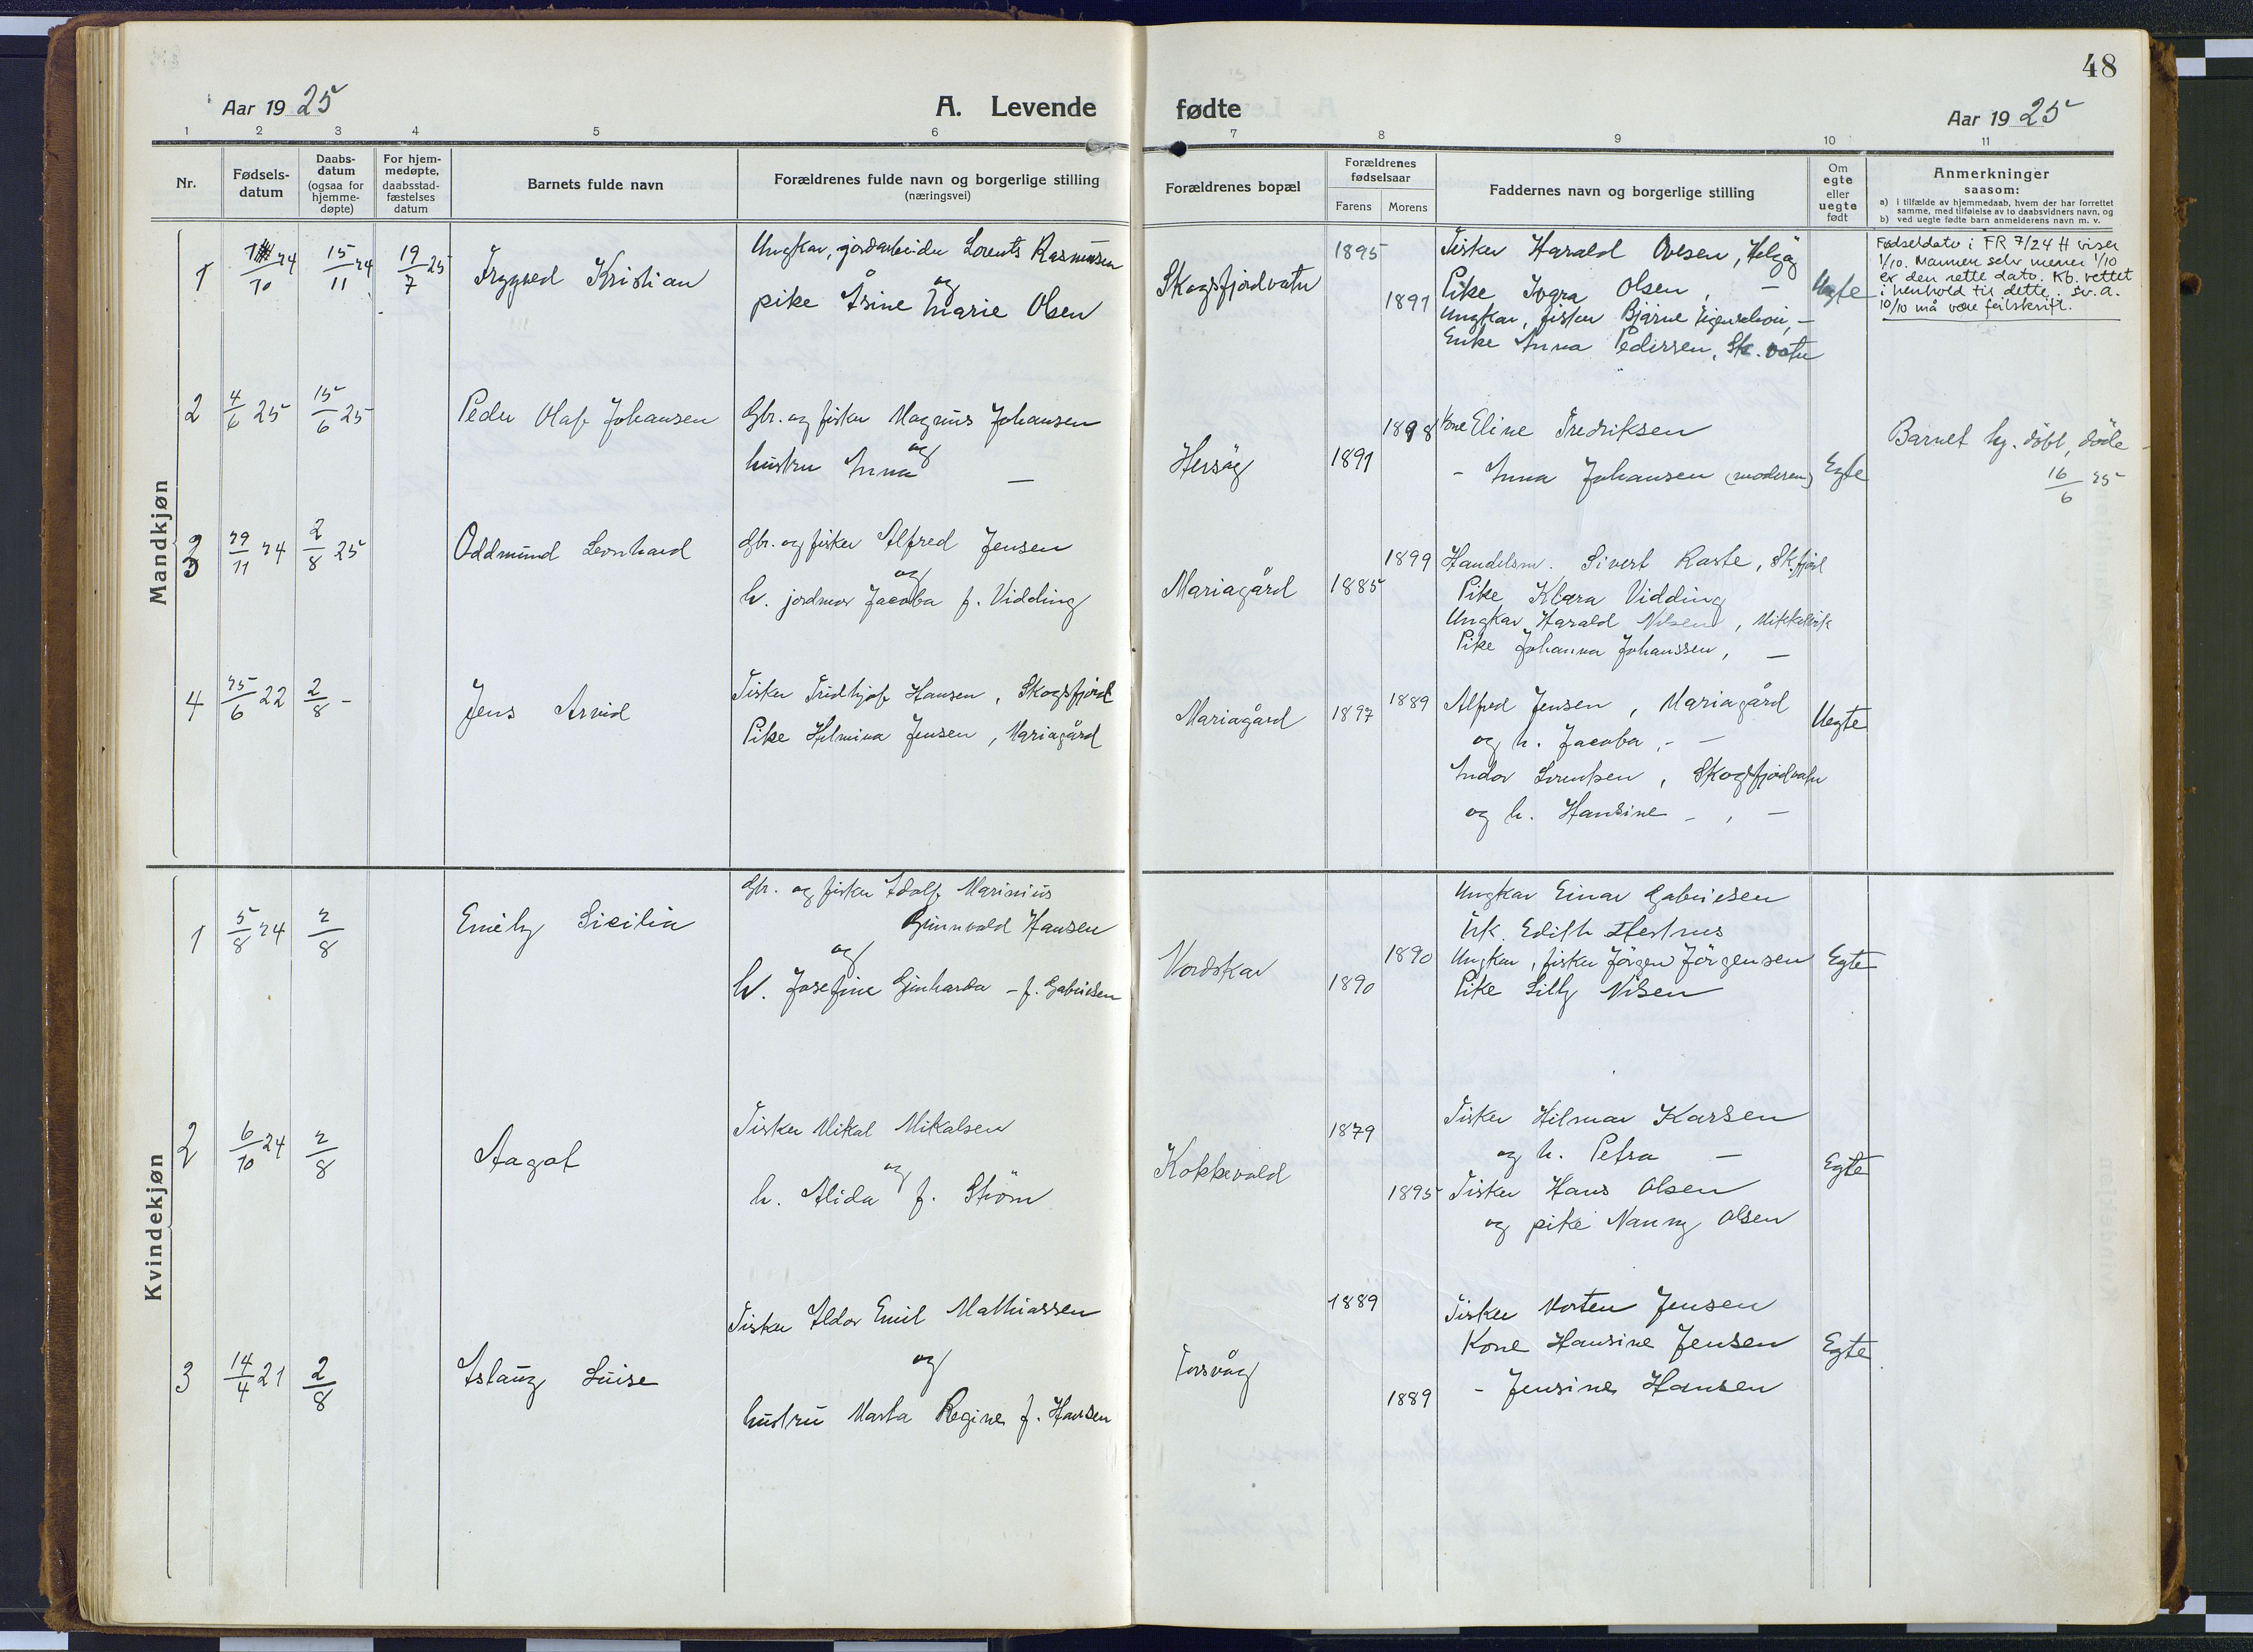 48
Aar 1925
A. Levende fødte
Aar 1925
1 2 3 4 5 6 7 8 9 10 11
Nr.
Fødsels-
datum
Daabs-
datum
(ogsaa for
hjemme-
døpte)
For hjem-
medøpte,
daabsstad-
fæstelses
datum
Barnets fulde navn
Forældrenes fulde navn og borgerlige stilling
(næringsvei)
Forældrenes bopæl
Forældrenes
fødselsaar
Farens Morens
Faddernes navn og borgerlige stilling
Om
egte
eller
uegte
født
Anmerkninger
saasom:
a) i tilfælde av hjemmedaab, hvem der har forrettet
samme, med tilføielse av to daabsvidners navn, og
b) ved uegte fødte barn anmelderens navn m. v.
Mandkjøn
1
15/11 24
19/7 25
Trygved Kristian
Ungkar, jordarbeider Lorents Rasmussen
og
pike Åsine Marie Olsen
Skogsfjordvatn
1895
1891
Fisker Harald Ovesen, Helgøy
Pike Olsen, –
Ungkar, fisker Bjarne –
Enke Anna Pedersen, Sk. vatn
Uegte
Fødseldato i FR 7/24 H viser
1/10. Mannen selv mener 1/10
er den rette dato. Kb. rettet
i henhold til dette. sv. a.
10/10 må være feilskrift.
2
4/6 25
15/6 25
Peder Olaf Johansen
Gbr. og fisker Magnus Johansen
og
hustru Anna –
Hessøy
1891
1898
Kone Eline Fredriksen
– Anna Johansen (moderen)
Egte
Barnet hj. døbt, døde
16/6 25
3
29/11 24
2/8 25
Oddmund Leonhard
Gbr. og fisker Alfred Jensen
og
h. jordmor Jacoba f. Vidding
Mariagård
1885
1899
Handelsm. Sivert Raste, Sk.fjord
Pike Klara Vidding
Ungkar Harald Nilsen, Mikkelvik
Pike Johanna Johanssen, –
4
25/6 22
2/8 –
Jens Arvid
Fisker Fridhjof Hansen, Skogsfjord
Pike Helmina Jensen, Mariagård
Mariagård
1897
1889
Alfred Jensen, Mariagård
og h. Jacoba, – –
Andor Lorentsen, Skogsfjordvatn
og h. Hansine – , –
Uegte
Kvindekjøn
1
5/8 24
2/8
Emely Sicilia
Gbr. og fisker Adolf Marinius
Gunnvald Hansen
og
h. Josefine Ginharda – f. Gabrielsen
Nordskar
1890
1890
Ungkar Einar Gabrielsen
Frk. Edith Hestnes
Ungkar, fisker Jörgen Jörgensen
Pike Lilly Nilsen
Egte
2
6/10 24
2/8
Aagot
Fisker Mikal Mikalsen
og
h. Alida f. Ström
Kokkevold
1879
1895
Fisker Hilmar Karlsen
og h. Petra –
Fisker Hans Olsen
og pike Nanny Olsen
Egte
3
14/4 21
2/8
Aslaug Luise
Fisker Aldor Emil Mathiassen
og
hustru Marta Regine f. Hansen
Torsvåg
1889
1889
Fisker Morten Jensen
Kone Hansine Jensen
– Jensine Hansen
Egte